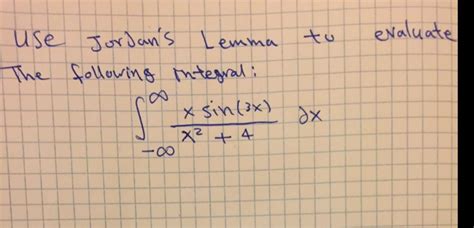 Use Jordan's Lemma to evaluate
The following integral:
∫_{-∞}^{∞} x sin(3x) / (x² + 4) dx